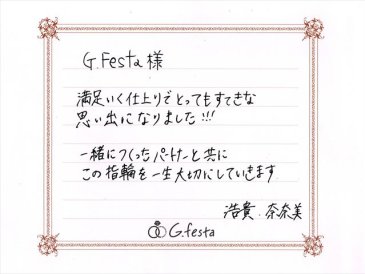 G.Festa様
満足いく仕上りでとってもすてきな
思い出になりました!!!
一緒につくったパートナーと共に
この指輪を一生大切にしていきます
浩貴.奈奈美
G.festa